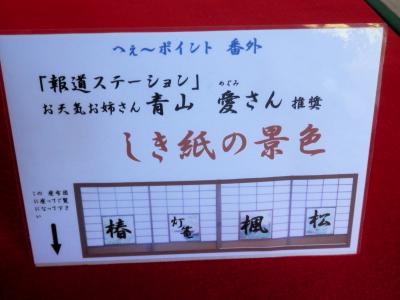 へぇ～ポイント 番外
「報道ステーション」
お天気お姉さん 青山 愛さん 推奨
めぐみ
しき紙の景色
この座布団
に座ってご覧
になって下さ
い
椿
灯篭
楓
松